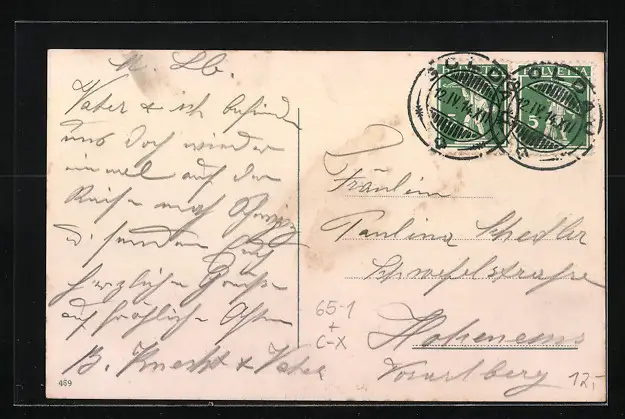 M. Lb.
Vater & ich befinden
uns doch wieder
einmal auf der
Reise nach Schwyz
u. senden Euch
herzliche Grüsse
auf fröhliche Ostern
B. Knecht & Vater
469
HELVETIA
5
HELVETIA
5
12.IV.14.XII
12.IV.14.XII
Fräulein
Paulina Schedler
Schwefelstrasse
Hohenems
Vorarlberg
65-1
+
C-X
12,-